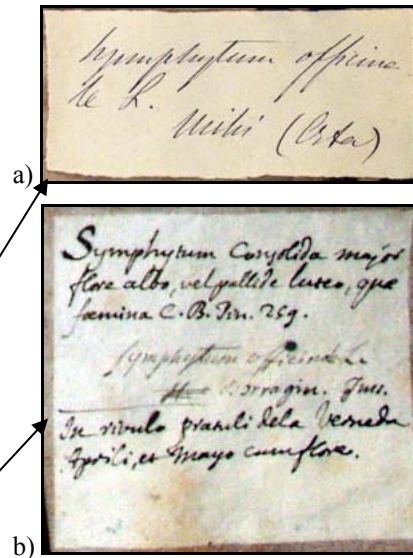 Symphytum officina
le L.
Mihi (Orta)
a)
Symphytum Consolida major
flore albo, vel pallide luteo, quæ
fœmina C. B. Pin. 259.
Symphytum officinale L.
Borragin. Juss.
In rivulo pratuli dela Verneda
Aprili, et Mayo cum flore.
b)